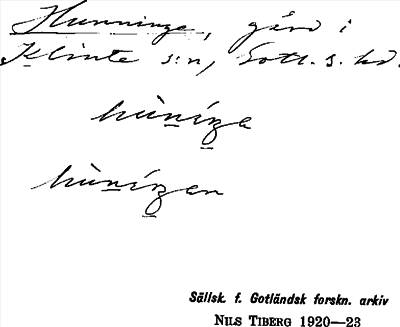 Hunninge, gård i
Klinte s:n, Gotl. s. hd.
hùni̱ńga
hùni̱ńgan
Sällsk. f. Gotländsk forskn. arkiv
NILS TIBERG 1920—23